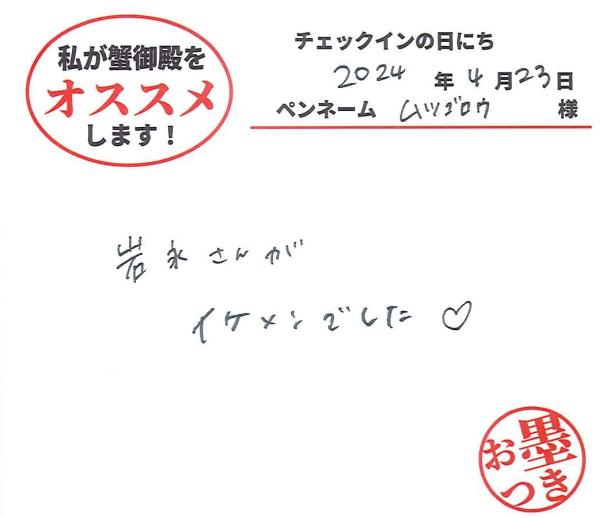 私が蟹御殿を
オススメ
します！
チェックインの日にち
2024年4月23日
ペンネーム ムツゴロウ 様
岩永さんが
イケメンでした♡
お墨つき